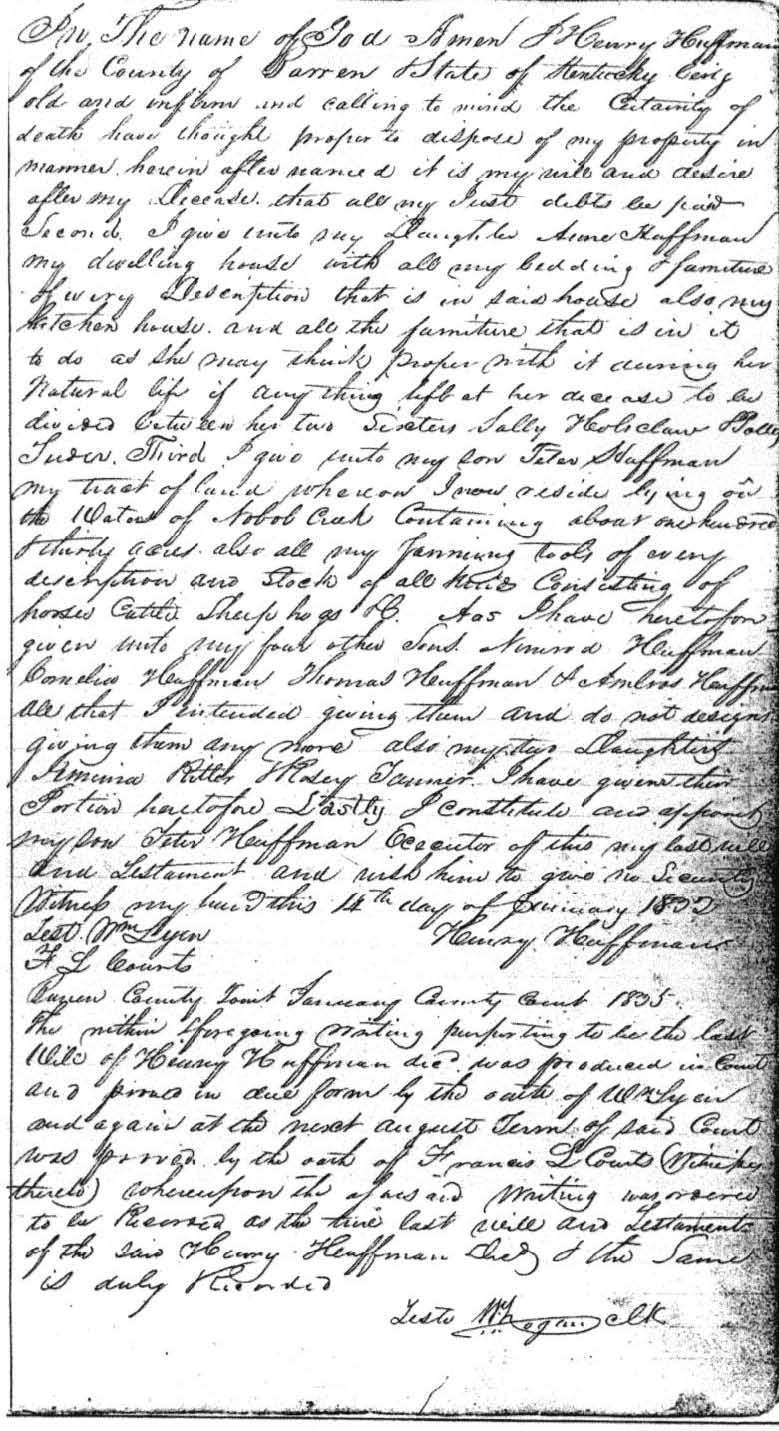 In The name of God Amen I Henry Huffman
of the County of Barren & State of Kentucky being
old and infirm and calling to mind the Certainity of
death have thought proper to dispose of my property in
manner herein after named it is my will and desire
after my Decease that all my Just debts be paid
Second. I give unto my Daughter Anne Huffman
my dwelling house with all my bedding & furniture
of every Description that is in said house also my
Kitchen house and all the furniture that is in it
to do as she may think proper with it during her
Natural life if any thing left at her decease to be
divided between her two Sisters Sally Holsclaw & Polly
Tuder. Third I give unto my son Peter Huffman
my tract of land whereon I now reside lying on
the Waters of Nobob Creek Containing about one hundred
& thirty acres also all my farming tools of every
description and Stock of all kind Consisting of
horses Cattle Sheep hogs &C. As I have heretofore
given unto my four other Sons Nimrod Huffman
Cornelius Huffman Thomas Huffman & Ambros Huffman
all that I intended giving them and do not design
giving them any more also my two Daughters
Jemima Ritter & Rosey Tanner I have given their
Portion heretofore Lastly I constitute and appoint
my son Peter Huffman Executor of this my last will
and Testament and wish him to give no Security
Witness my hand this 14th day of January
Test. Wm Lyen Henry Huffman
F L Courts
County January County Court 1835.
The within & foregoing writing purporting to be the last
Will of Henry Huffman decd. was produced in Court
and proved in due form by the oath of Wm Lyen
and again at the next august Term of said Court
was proved by the oath of Francis L Courts (Witness
thereto) whereupon the aforesaid writing was ordered
to be Recorded as the true last will and Testament
of the said Henry Huffman Decd & the Same
is duly Recorded
Teste W Logan Clk